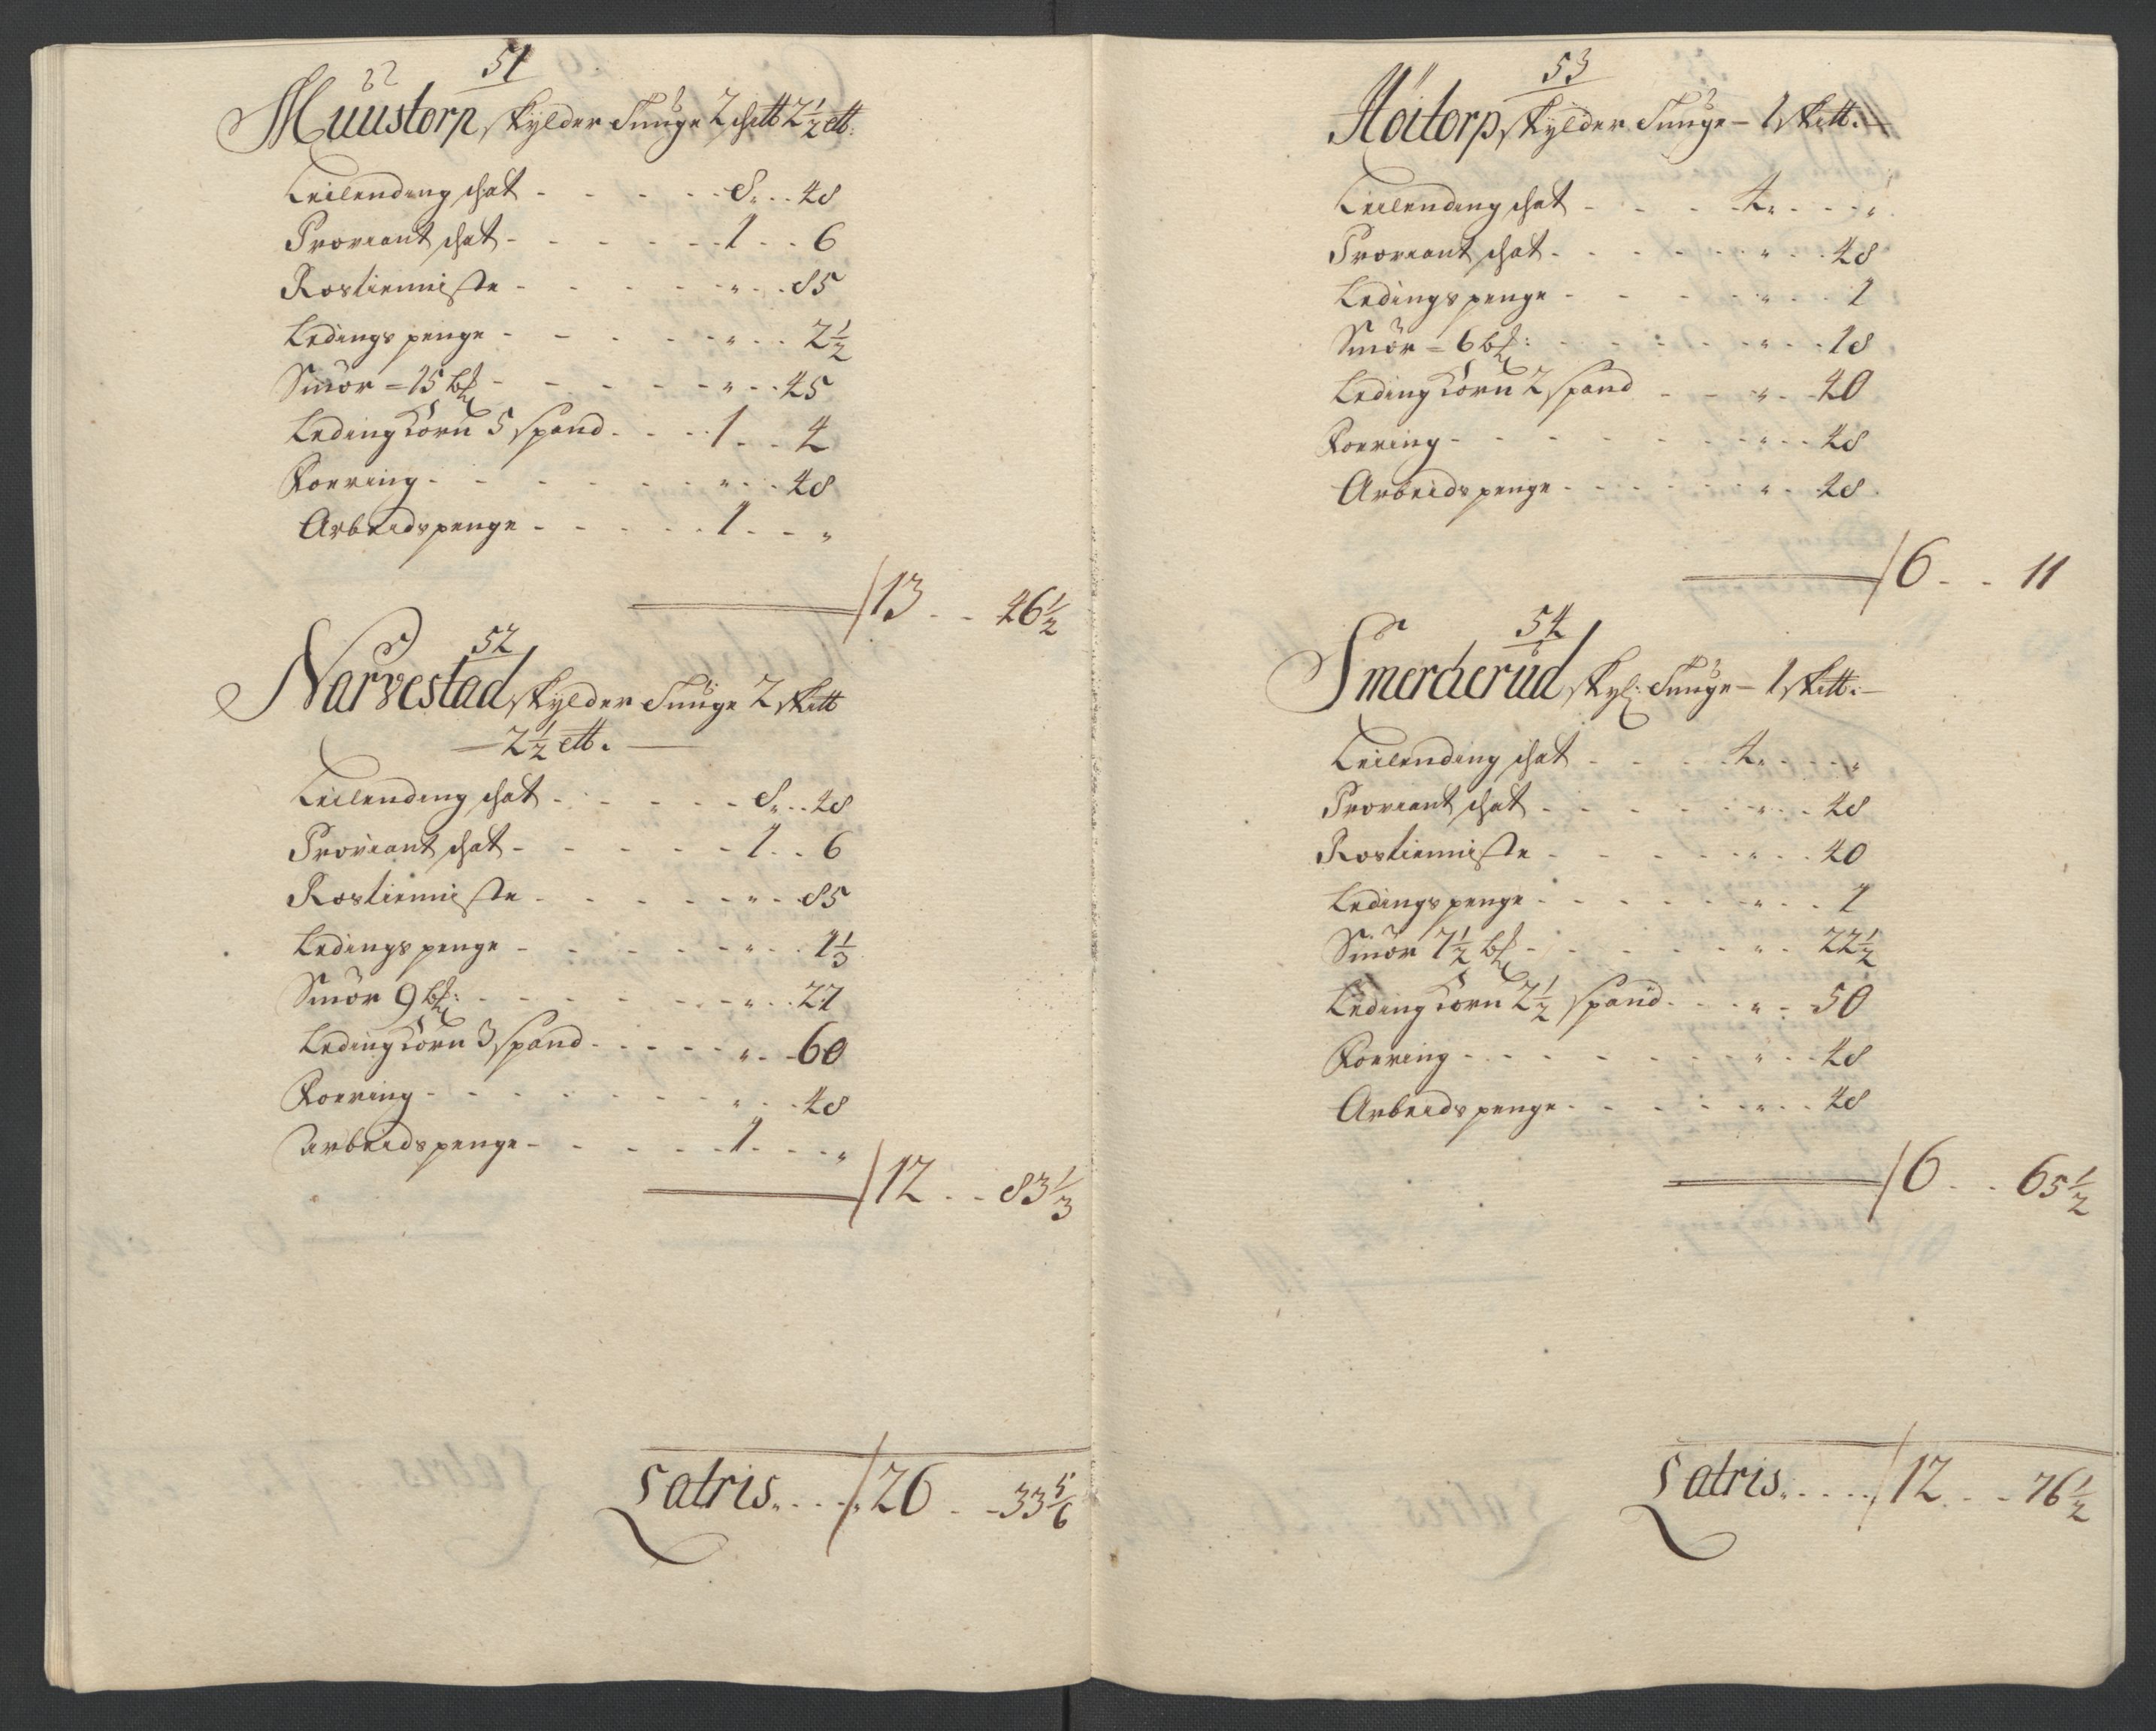 51
Muustorp skylder Tunge 2 skett 2½ ett:
Leilending schat - - - - - 8 . . 48
Proviant schat - - - - - 1 . . 6
Rostieniste - - - - - " . . 85
Ledings penge - - - - - " . . 2½
Smör = 15 b - - - - - " . . 45
Leding Korn 5 spand - - - 1 . . 4
Foering - - - - - " . . 48
Arbeids penge - - - - - 1 - - "
13 - - 46½
52
Narvestad skylder Tunge 2 skett
— 2½ ett. —
Leilending schat - - - - - 8 . . 48
Proviant schat - - - - - 1 . . 6
Rostieniste - - - - - " . . 85
Ledings penge - - - - - " . . 1⅓
Smör 9 b: - - - - - " . . 27
Leding Korn 3 spand - - - - " . . 60
Foering - - - - - " . . 48
Arbeids penge - - - - - 1 - - "
12 - - 83⅓
Latris . . . . 26 - - 33⅚
53
Höitorp skylder Tunge - 1 skett: -
Leilending schat - - - 4 - - "
Proviant schat - - - - - " . . 48
Ledings penge - - - - - " . . 1
Smör = 6 b: - - - - - " . . 18
Leding Korn 2 spand - - - " . . 40
Foering - - - - - " . . 48
Arbeids penge - - - - - " . . 48
6 - - 11
54
Smerderud skyl: Tunge - 1 skett: -
Leilending schat - - - 4 - - "
Proviant schat - - - - - " . . 48
Rostieniste - - - - - " . . 40
Ledings penge - - - - - " . . 1
Smör 7½ b - - - - - " . . 22½
Leding Korn 2½ spand - - - " . . 50
Foering - - - - - " . . 48
Arbeids penge - - - - - " . . 48
6 - - 65½
Latris . . . . 12 - - 76½